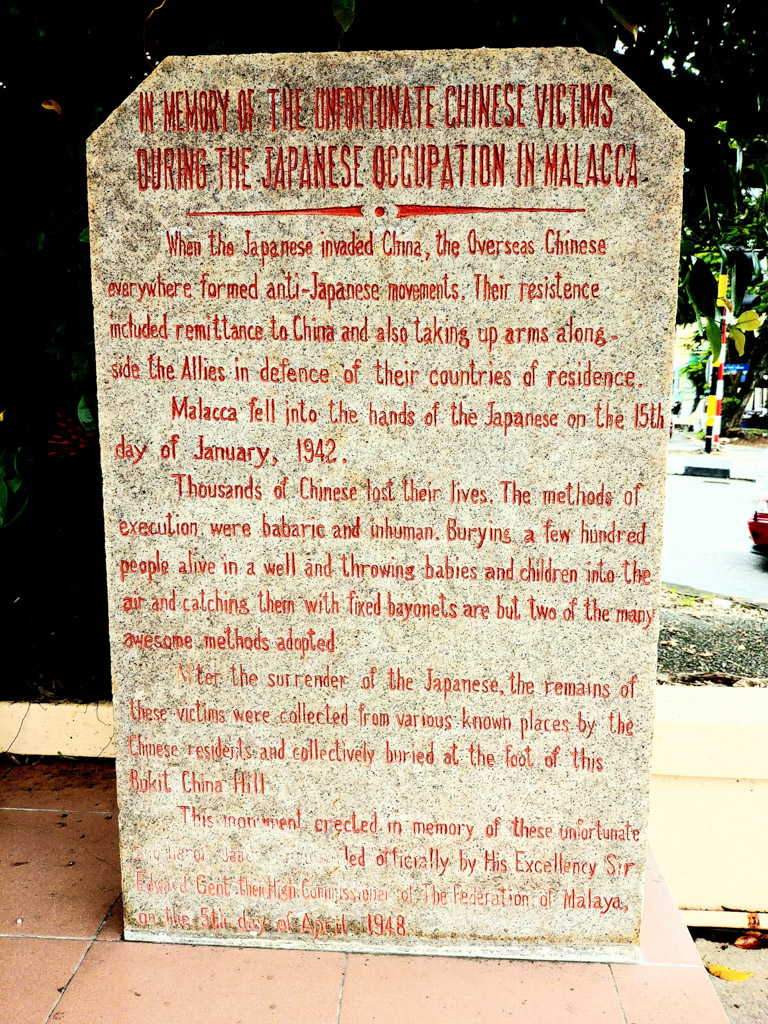 IN MEMORY OF THE UNFORTUNATE CHINESE VICTIMS
DURING THE JAPANESE OCCUPATION IN MALACCA
When the Japanese invaded China, the Overseas Chinese
everywhere formed anti-Japanese movements. Their resistence
included remittance to China and also taking up arms along-
side the Allies in defence of their countries of residence.
Malacca fell into the hands of the Japanese on the 15th
day of January, 1942.
Thousands of Chinese lost their lives. The methods of
execution were babaric and inhuman. Burying a few hundred
people alive in a well and throwing babies and children into the
air and catching them with fixed bayonets are but two of the many
awesome methods adopted
After the surrender of the Japanese, the remains of
these victims were collected from various known places by the
Chinese residents and collectively buried at the foot of this
Bukit China Hill
This monument erected in memory of these unfortunate
officially by His Excellency Sir
Edward Gent then High Commissioner of The Federation of Malaya,
on the 5th day of April 1948